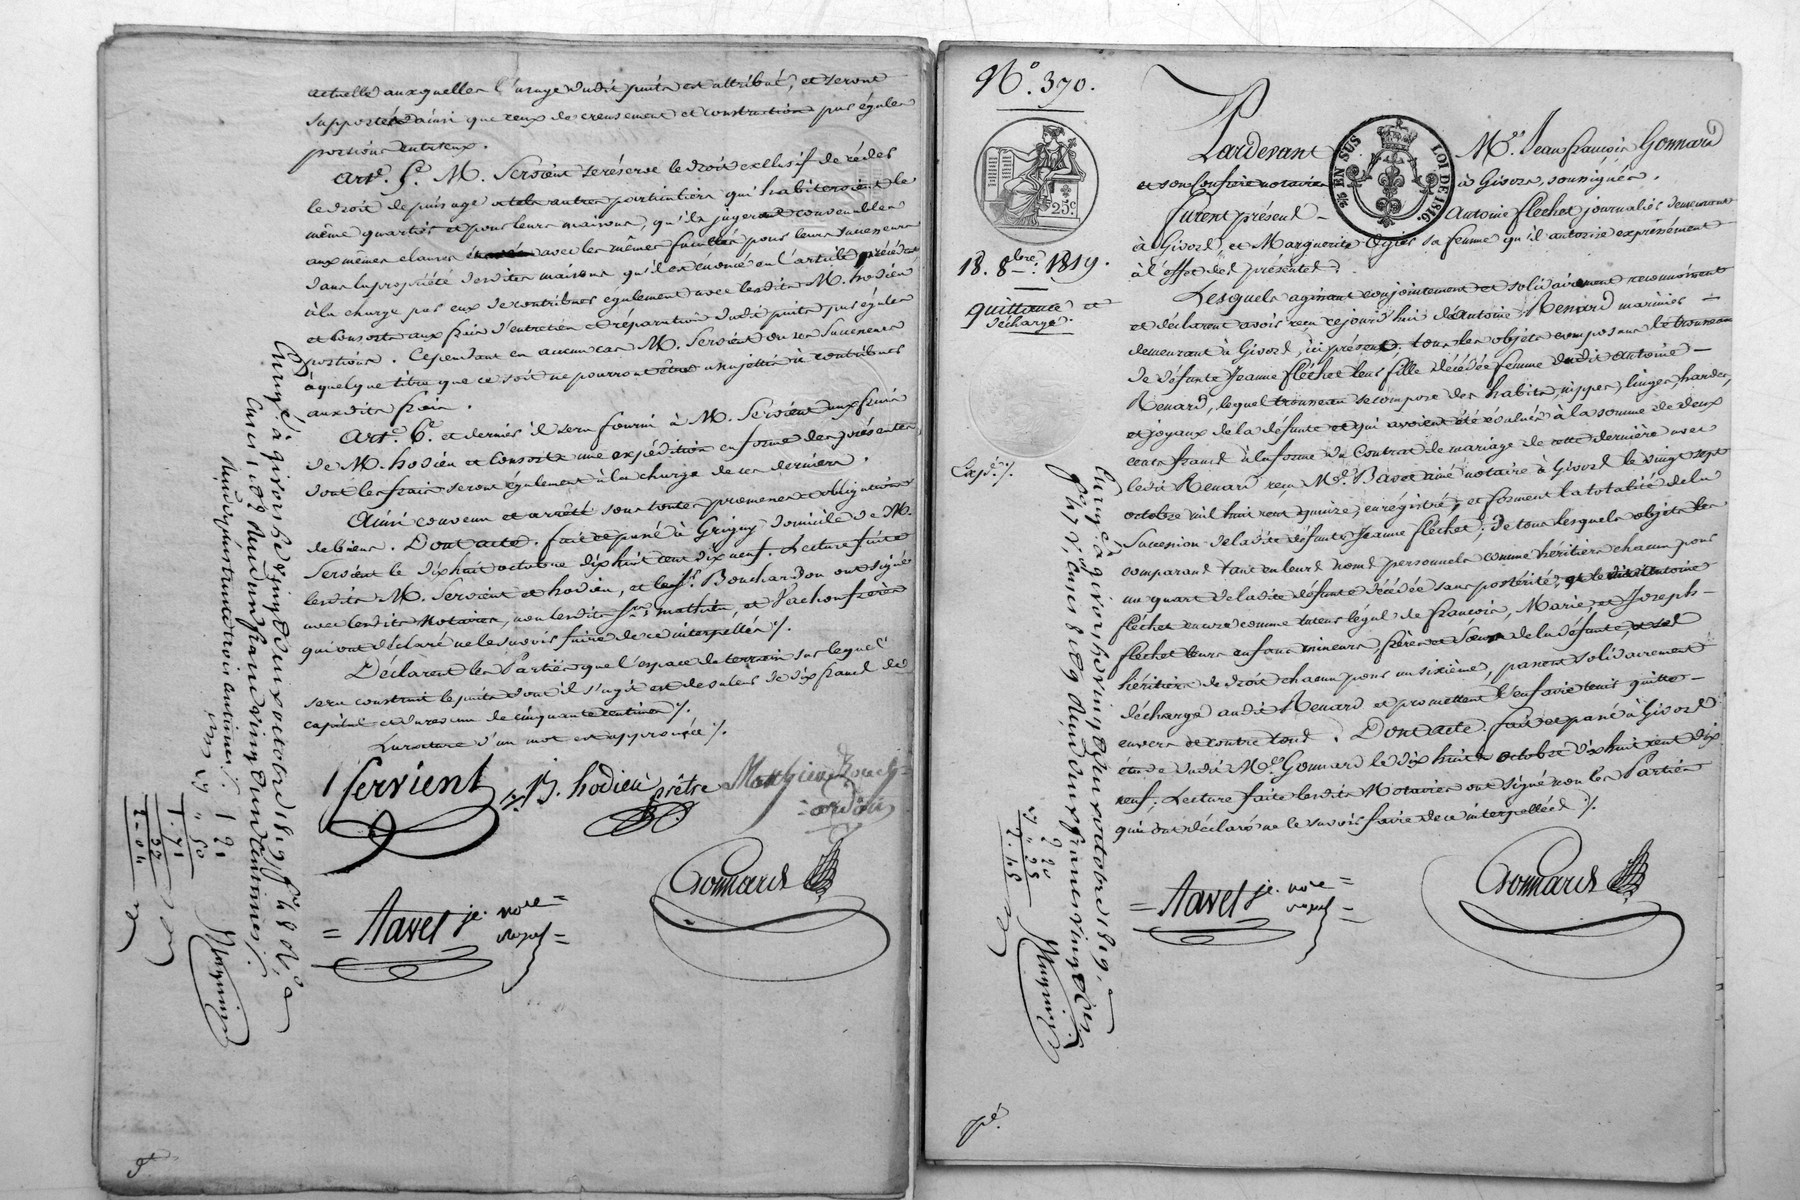 actuelle auxquelles l'usage dudit puits est attribué, et seront
supportés ainsi que ceux de creusement et construction par égales
portions entr'eux.
Arte. 5e. M. Servient se réserve le droit exclusif de céder
le droit de puisage à tels autres particuliers qui habiteroient le
même quartier et pour leurs maisons, qu'ils jugeront convenables
aux mêmes clauses avec les mêmes facultés pour leurs successeurs
dans la propriété desdites maisons qu'il est énoncé en l'article précédent
à la charge par eux de contribuer également avec lesdits M. hodieu
et consorts aux frais d'entretien et réparation dudit puits par égales
portions. Cependant en aucun cas M. Servient ou ses successeurs
à quelque titre que ce soit ne pourront être assujettis à contribuer
auxdits frais.
Arte. 6e et dernier il sera fourni à M. Servient aux frais
de M. hodieu et consorts une expédition en forme des présentes
dont les frais seront également à la charge de ces derniers.
Ainsi convenu et arrêté sous toutes promesses et obligations
de biens. Dont acte. fait et passé à Grigny domicile de M.
Servient le dix huit octobre dix huit cent dix neuf. Lecture faite
lesdits M. Servient et hodieu, et Bouchardon ont signé
avec lesdits Notaires, non lesdits mathieu, et Pachon frères
qui ont déclaré ne le savoir faire de ce interpellés ./.
Déclarent les Parties que l'espace de terrein sur lequel
sera construit le puits dont il s'agit est de valeur de dix francs de
capital et d'un revenu de cinquante centimes ./.
La rature d'un mot est approuvée ./.
Servient
hodieu prêtre
Mathieu Bouch=
=ardon
= Favel je. nore =
Gonnard
Enregé. à givors le vingt deux octobre 1819
Reçu un franc vingt un centimes
No. 370.
18. 8bre. 1819.
quittance et
décharge.
Expé. ./.
25c.
EN SUS LOI DE 1816.
Pardevant Me. Jean françois Gonnard
et son Confrère notaires à Givors, soussignés.
Furent présens Antoine fléchet journalier demeurant
à Givors, et Marguerite Ogier sa femme qu'il autorise expressément
à l'effet des présentes.
Lesquels agissant conjointement et solidairement reconnoissent
et déclarent avoir reçu ce jourd'hui d'Antoine Renard marinier
demeurant à Givors, ici présent, tous les objets composans le trousseau
de défunte Jeanne fléchet leur fille décédée femme dudit Antoine
Renard, lequel trousseau se compose des habits, nippes, linges, hardes,
et joyaux de la défunte et qui avoient été évalués à la somme de deux
cents francs à la forme du Contrat de mariage de cette dernière avec
ledit Renard reçu Me. Bavet ainé notaire à Givors le vingt sept
octobre mil huit cent quinze, enregistré, et forment la totalité de la
Succession de ladite défunte Jeanne fléchet; de tous lesquels objets les
comparans tant en leurs noms personnels comme héritiers chacun pour
un quart de ladite défunte décédée sans postérité, et ledit Antoine
fléchet encore comme tuteur légal de françois, Marie, et Joseph
fléchet leurs enfans mineurs frères et sœur de la défunte, et ses
héritiers de droit chacun pour un sixième, passent solidairement
décharge audit Renard et promettent l'en faire tenir quitte
envers et contre tous. Dont acte. fait et passé à Givors
étude dudit Me. Gonnard le dix huit octobre dix huit cent dix
neuf. Lecture faite lesdits Notaires ont signé non les Parties
qui ont déclaré ne le savoir faire de ce interpellées ./.
= Favel je. nore =
Gonnard
Enregé. à givors, le vingt deux octobre 1819,
Reçu deux francs vingt